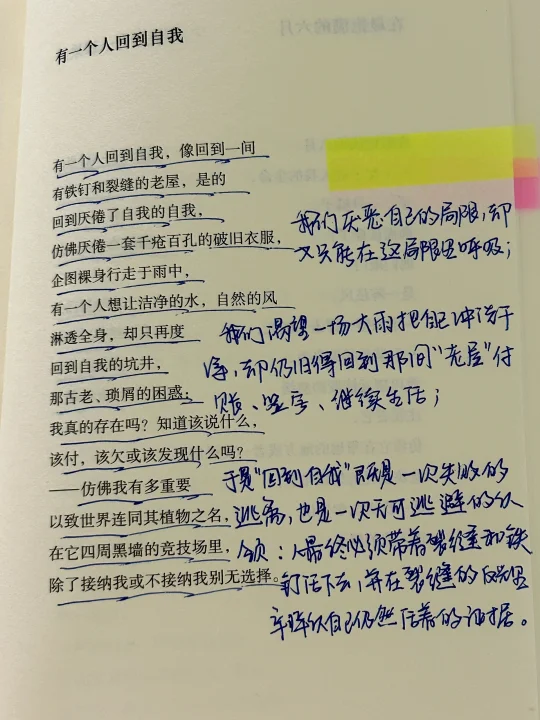 有一个人回到自我
有一个人回到自我，像回到一间
有铁钉和裂缝的老屋，是的
回到厌倦了自我的自我，
仿佛厌倦一套千疮百孔的破旧衣服，
企图裸身行走于雨中，
有一个人想让洁净的水，自然的风
淋透全身，却只再度
回到自我的坑井，
那古老、琐屑的困惑：
我真的存在吗？知道该说什么，
该付，该欠或该发现什么吗？
——仿佛我有多重要
以致世界连同其植物之名，
在它四周黑墙的竞技场里，
除了接纳我或不接纳我别无选择。
我们厌恶自己的局限，却
又只能在这局限里呼吸；
我们渴望一场大雨把自己冲洗干
净，却仍旧得回到那间“老屋”付
账、坐牢、继续生活；
于是“回到自我”既是一次失败的
逃离，也是一次无可逃避的认
领：人最终必须带着裂缝和铁
钉活下去，并在裂缝的反光里
辛辣认自己仍然活着的证据。